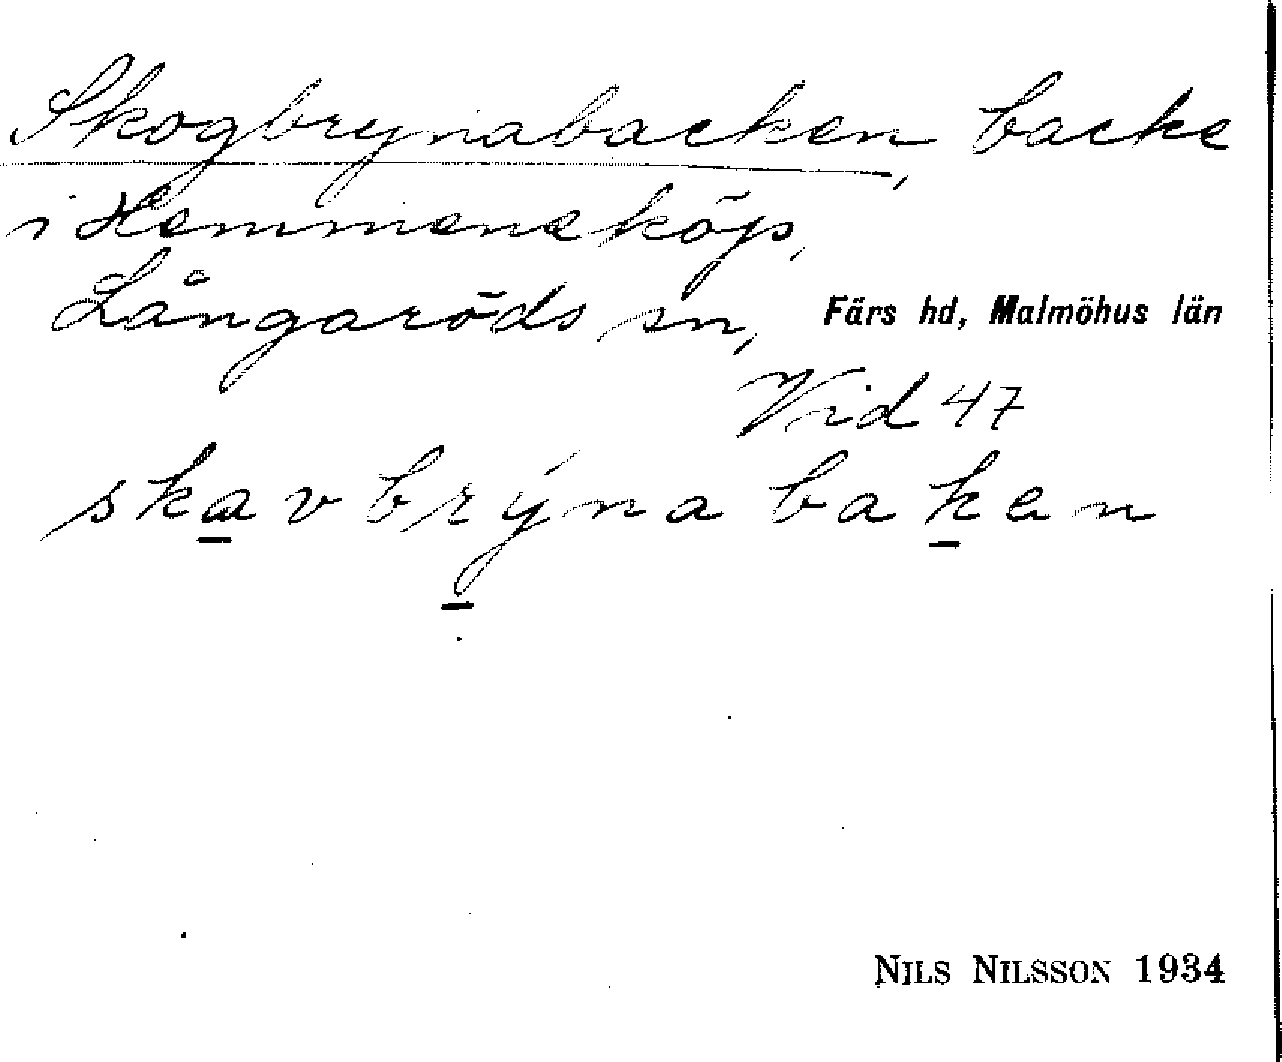 Skogbrynabacken, backe
i Hemmeneköp,
Långaröds sn, Färs hd, Malmöhus län
Vid 47
skavbrýna baken
NILS NILSSON 1934